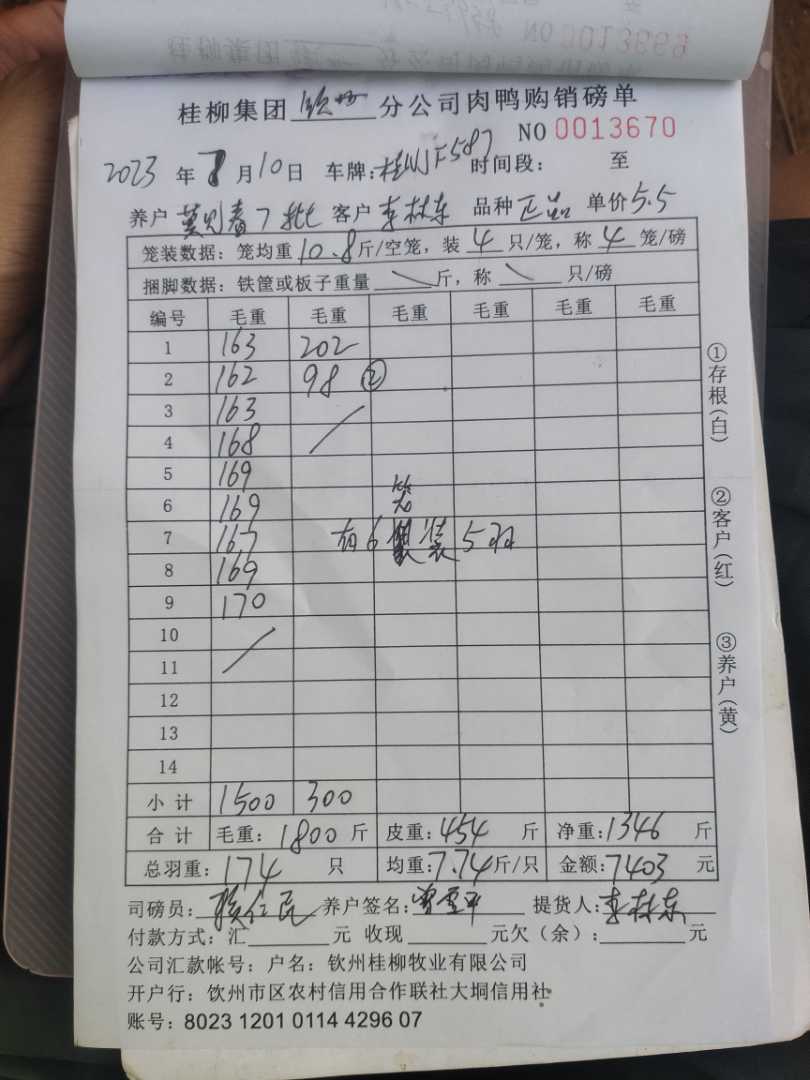 桂柳集团 钦州 分公司肉鸭购销磅单
NO 0013670
2023 年 8 月 10 日 车牌:桂NJF587 时间段: 至
养户 莫见春7批 客户 李林东 品种 正品 单价 5.5
笼装数据:笼均重 10.8 斤/空笼,装 4 只/笼,称 4 笼/磅
捆脚数据:铁筐或板子重量 \ 斤,称 \ 只/磅
编号 毛重 毛重 毛重 毛重 毛重 毛重
1 163 202
2 162 98 ②
3 163 /
4 168
5 169
6 169 笼
7 167 有6 装5羽
8 169
9 170
10 /
11
12
13
14
小计 1500 300
合计 毛重:1800 斤 皮重:454 斤 净重:1346 斤
总羽重:174 只 均重:7.74 斤/只 金额:7403 元
司磅员: 养户签名: 提货人:李林东
付款方式:汇 元 收现 元欠(余): 元
公司汇款帐号:户名:钦州桂柳牧业有限公司
开户行:饮州市区农村信用合作联社大垌信用社
账号:8023 1201 0114 4296 07
①存根(白)
②客户(红)
③养户(黄)